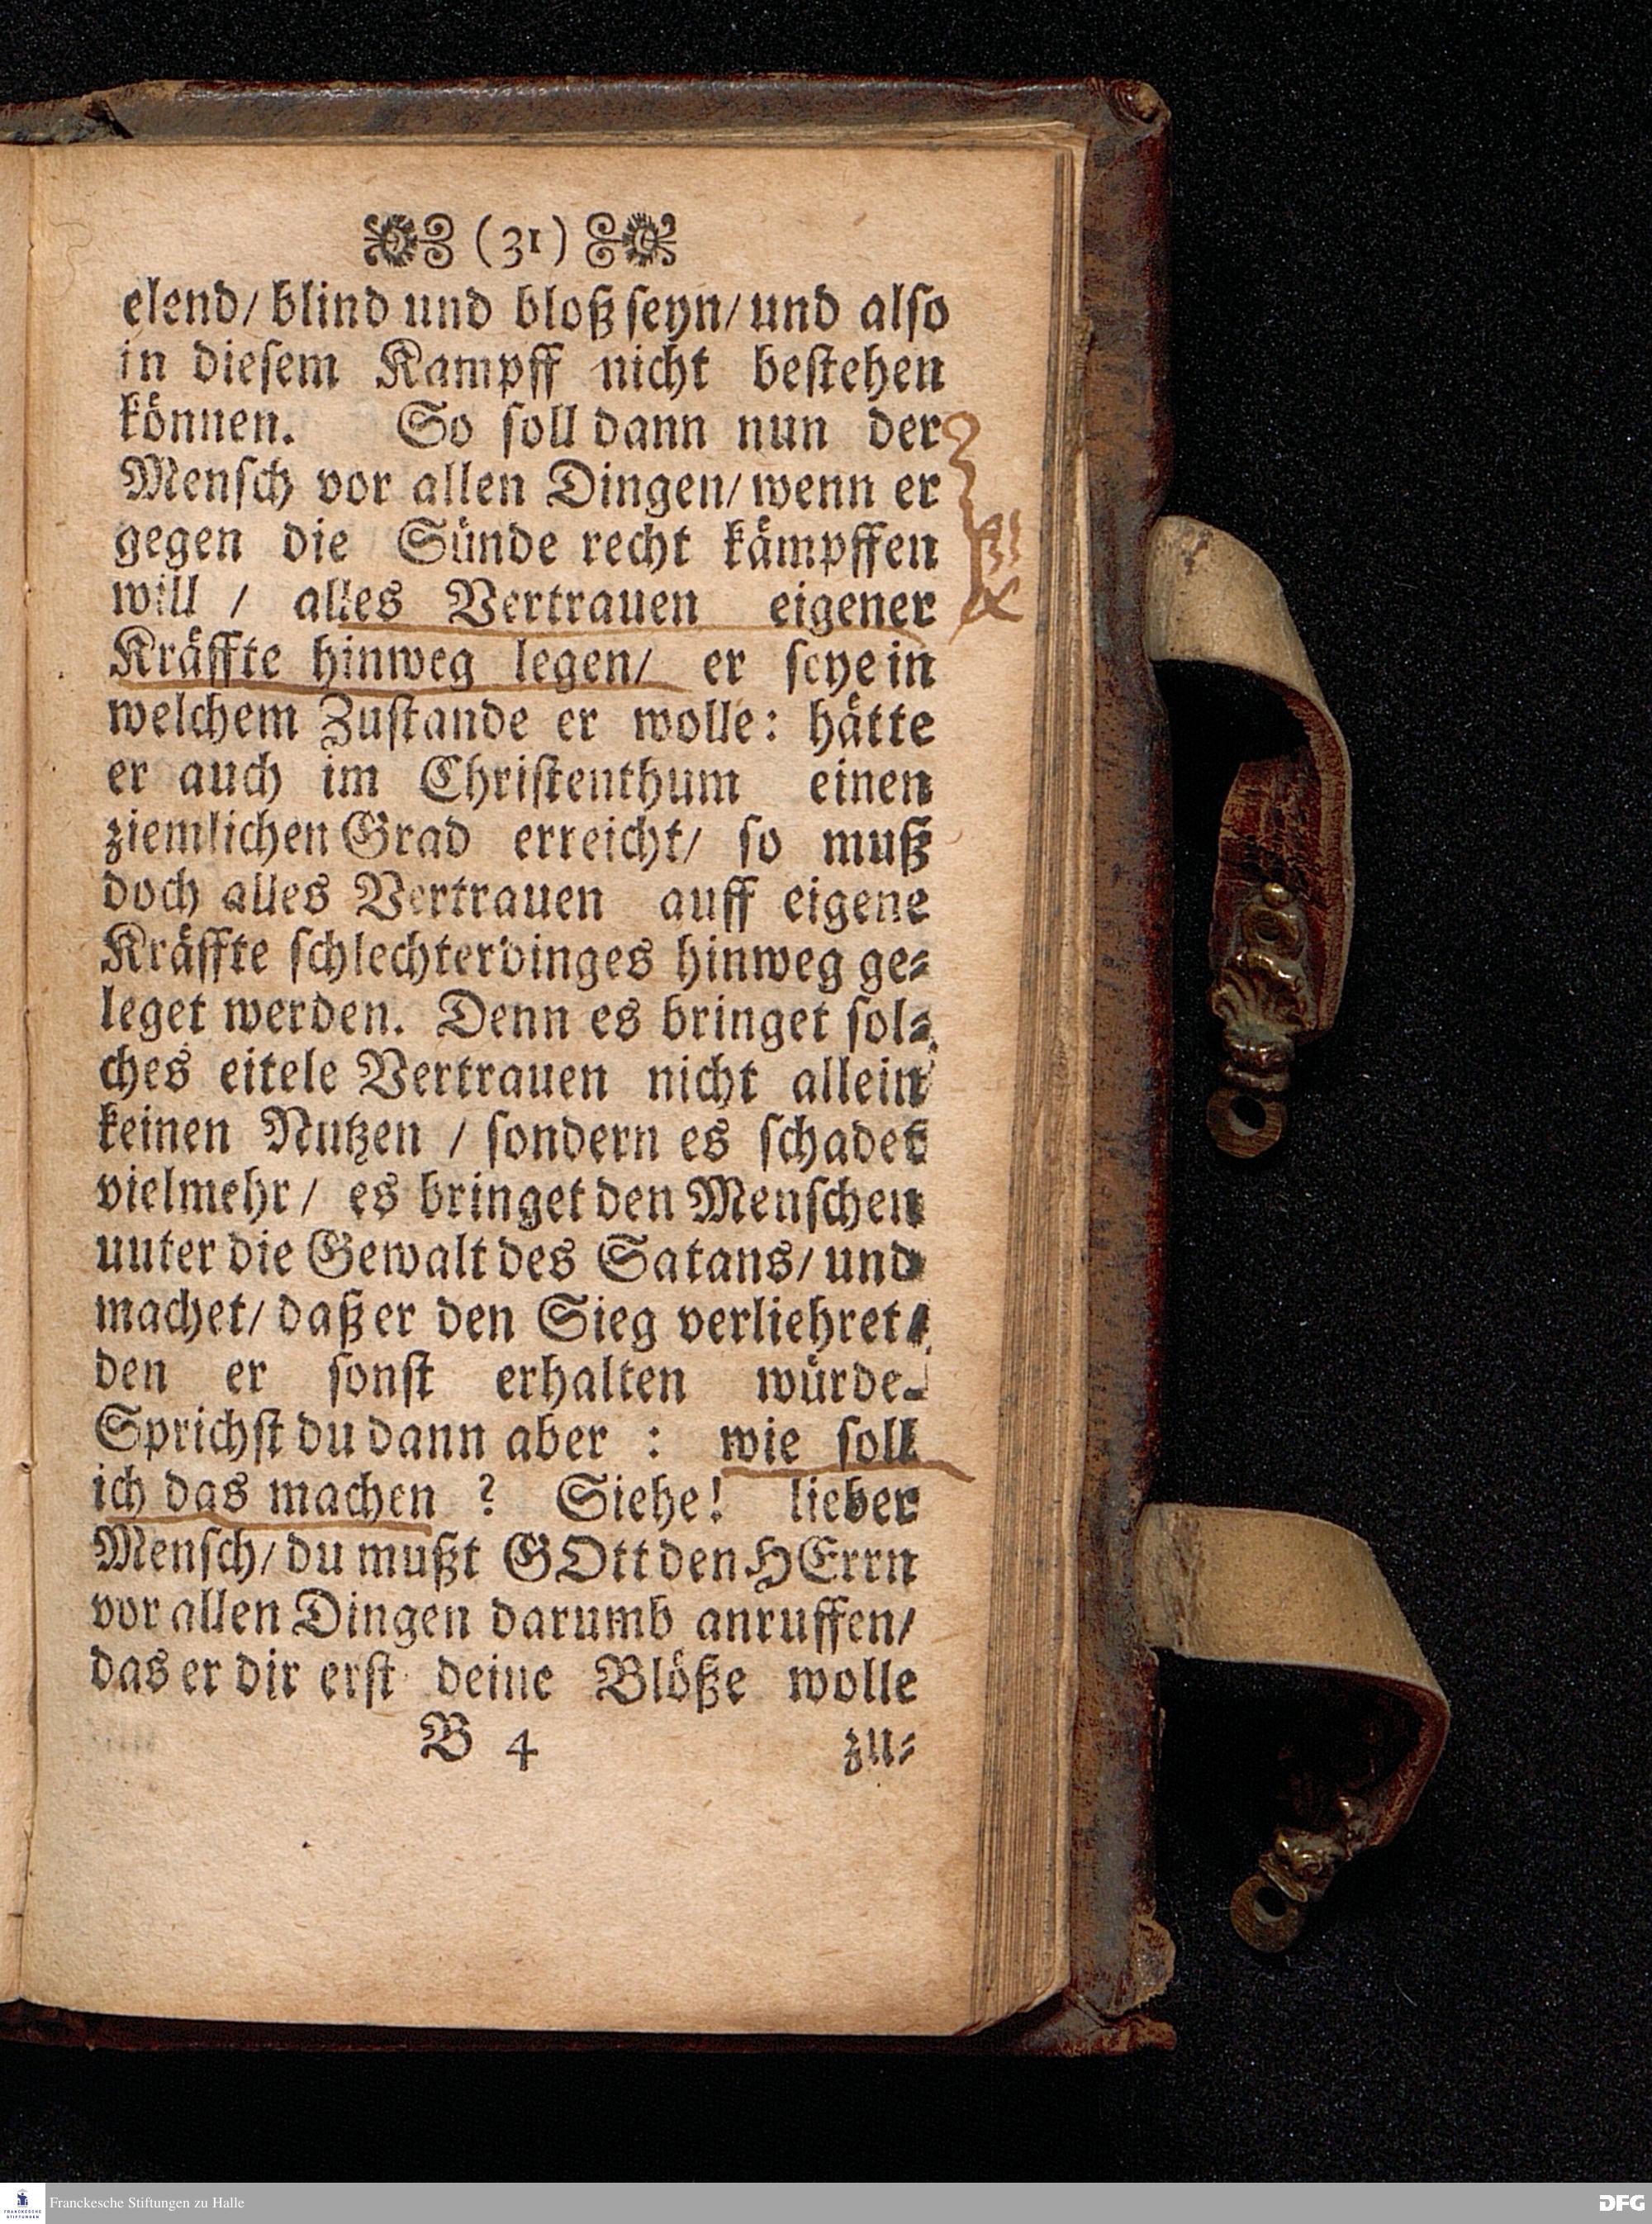 (31)
elend/ blind und bloß ſeyn/ und alſo
in dieſem Kampff nicht beſtehen
können. So ſoll dann nun der
Menſch vor allen Dingen/ wenn er
gegen die Sünde recht kämpffen
will / alles Vertrauen eigener
Kräffte hinweg legen/ er ſeye in
welchem Zuſtande er wolle: hätte
er auch im Chriſtenthum einen
ziemlichen Grad erreicht/ ſo muß
doch alles Vertrauen auff eigene
Kräffte ſchlechterdinges hinweg ge⸗
leget werden. Denn es bringet ſol⸗
ches eitele Vertrauen nicht allein
keinen Nutzen / ſondern es ſchadet
vielmehr/ es bringet den Menſchen
uuter die Gewalt des Satans/ und
machet/ daß er den Sieg verliehret/
den er ſonſt erhalten würde.
Sprichſt du dann aber : wie ſoll
ich das machen ? Siehe! lieber
Menſch/ du mußt GOtt den HErrn
vor allen Dingen darumb anruffen/
das er dir erſt deine Blöße wolle
B 4 zu⸗
Franckesche Stiftungen zu Halle
DFG